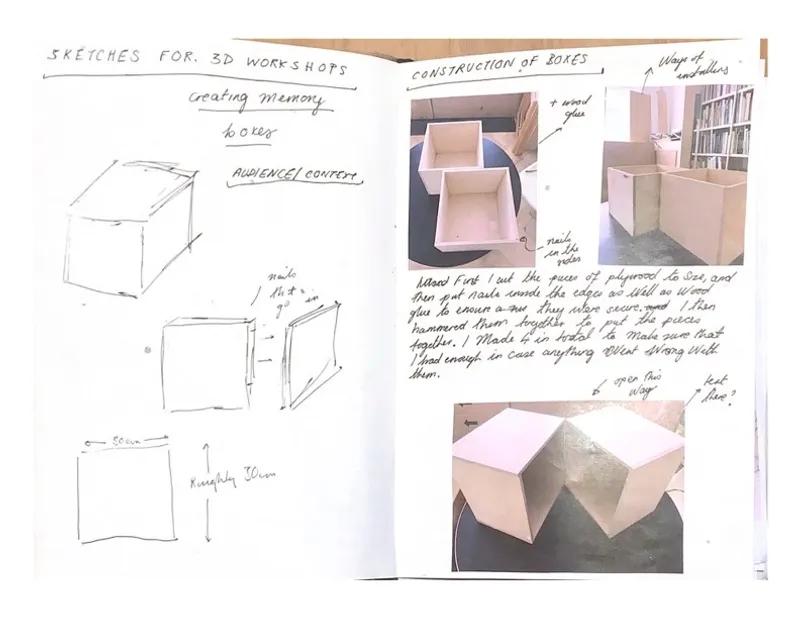 SKETCHES FOR. 3D WORKSHOPS
creating memory
boxes
AUDIENCE/CONTEXT
nails
that
go in
30cm
Roughly 30cm
CONSTRUCTION OF BOXES
Ways of
installing
+ wood
glue
nails
in the
First I cut the pieces of plywood to size, and
then put nails inside the edges as well as wood
glue to ensure they were secure. I then
hammered them together to put the pieces
together. I Made 4 in total to make sure that
I had enough in case anything Went Wrong With
them.
open this
way
text
here?